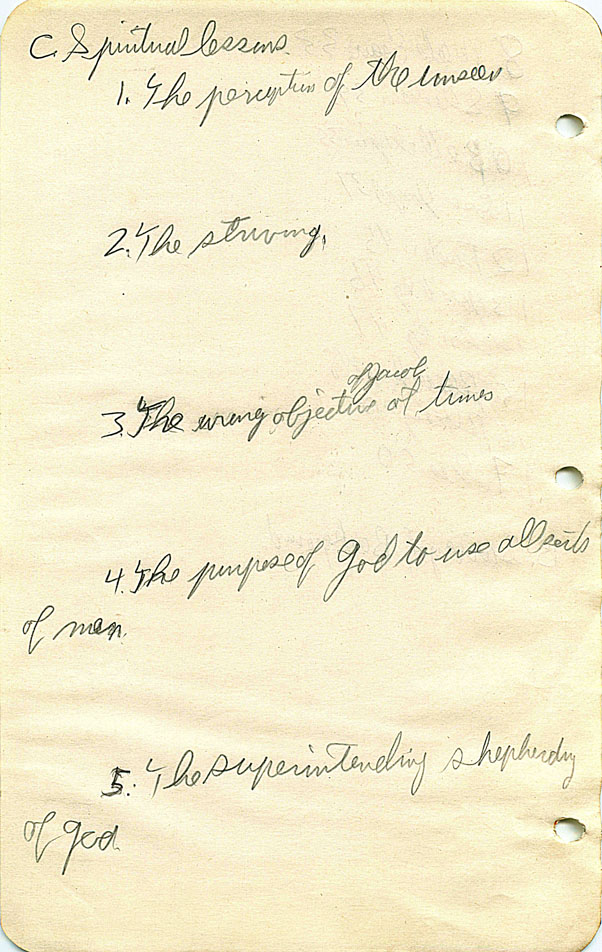 C. Spiritual lessons
1. The perception of the unseen
2. The striving.
of Jacob
3. The wrong objective at times
4. The purpose of God to use all sorts
of men.
5. The superintending shepherding
of God